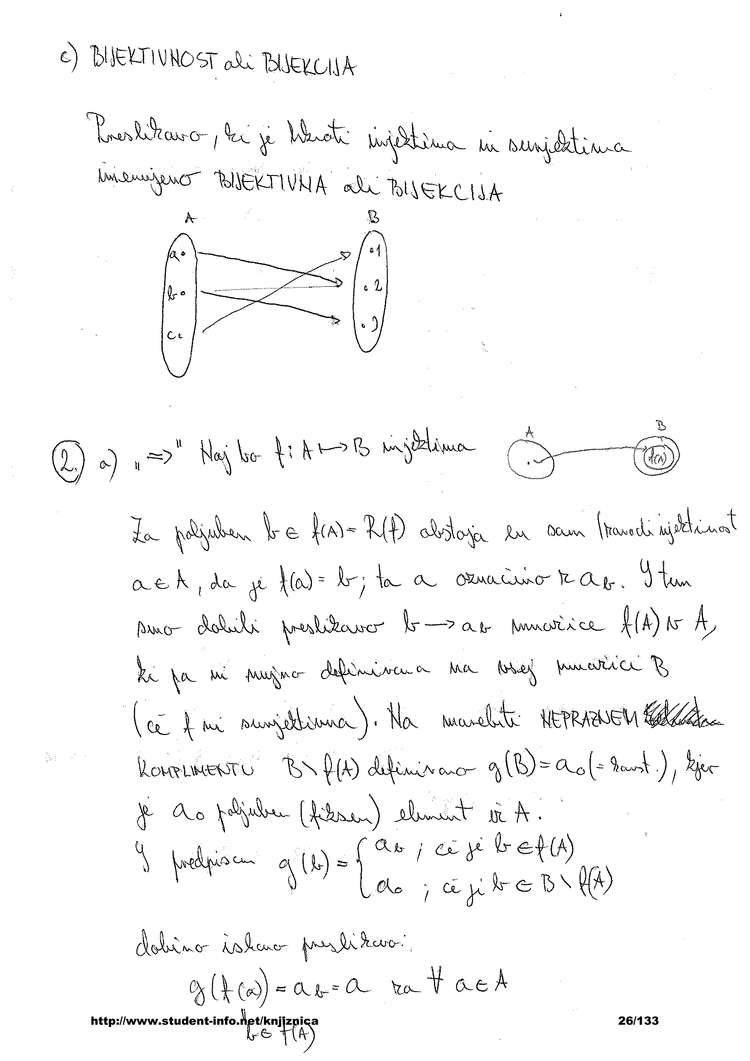 c) BIJEKTIVNOST ali BIJEKCIJA
Preslikavo, ki je hkrati injektivna in surjektivna
imenujemo BIJEKTIVNA ali BIJEKCIJA
A B
a 1
b 2
c 3
2. a) "=>" Naj bo f: A ↦ B injektivna
A B f(A)
Za poljuben b ∈ f(A) = R(f) obstaja en sam (zaradi injektivnost
a ∈ A, da je f(a) = b; ta a označimo z a_b. S tem
smo dobili preslikavo b → a_b množice f(A) v A,
ki pa ni nujno definirana na vsej množici B
(če f ni surjektivna). Na morebiti NEPRAZNEM
KOMPLIMENTU B \ f(A) definiramo g(B) = a₀ (= konst.), kjer
je a₀ poljuben (fiksen) element iz A.
S predpisom g(b) = { a_b ; če je b ∈ f(A)
a₀ ; če je b ∈ B \ f(A)
dobimo iskano preslikavo:
g(f(a)) = a_b = a za ∀ a ∈ A
b ∈ f(A)
http://www.student-info.net/knjiznica 26/133